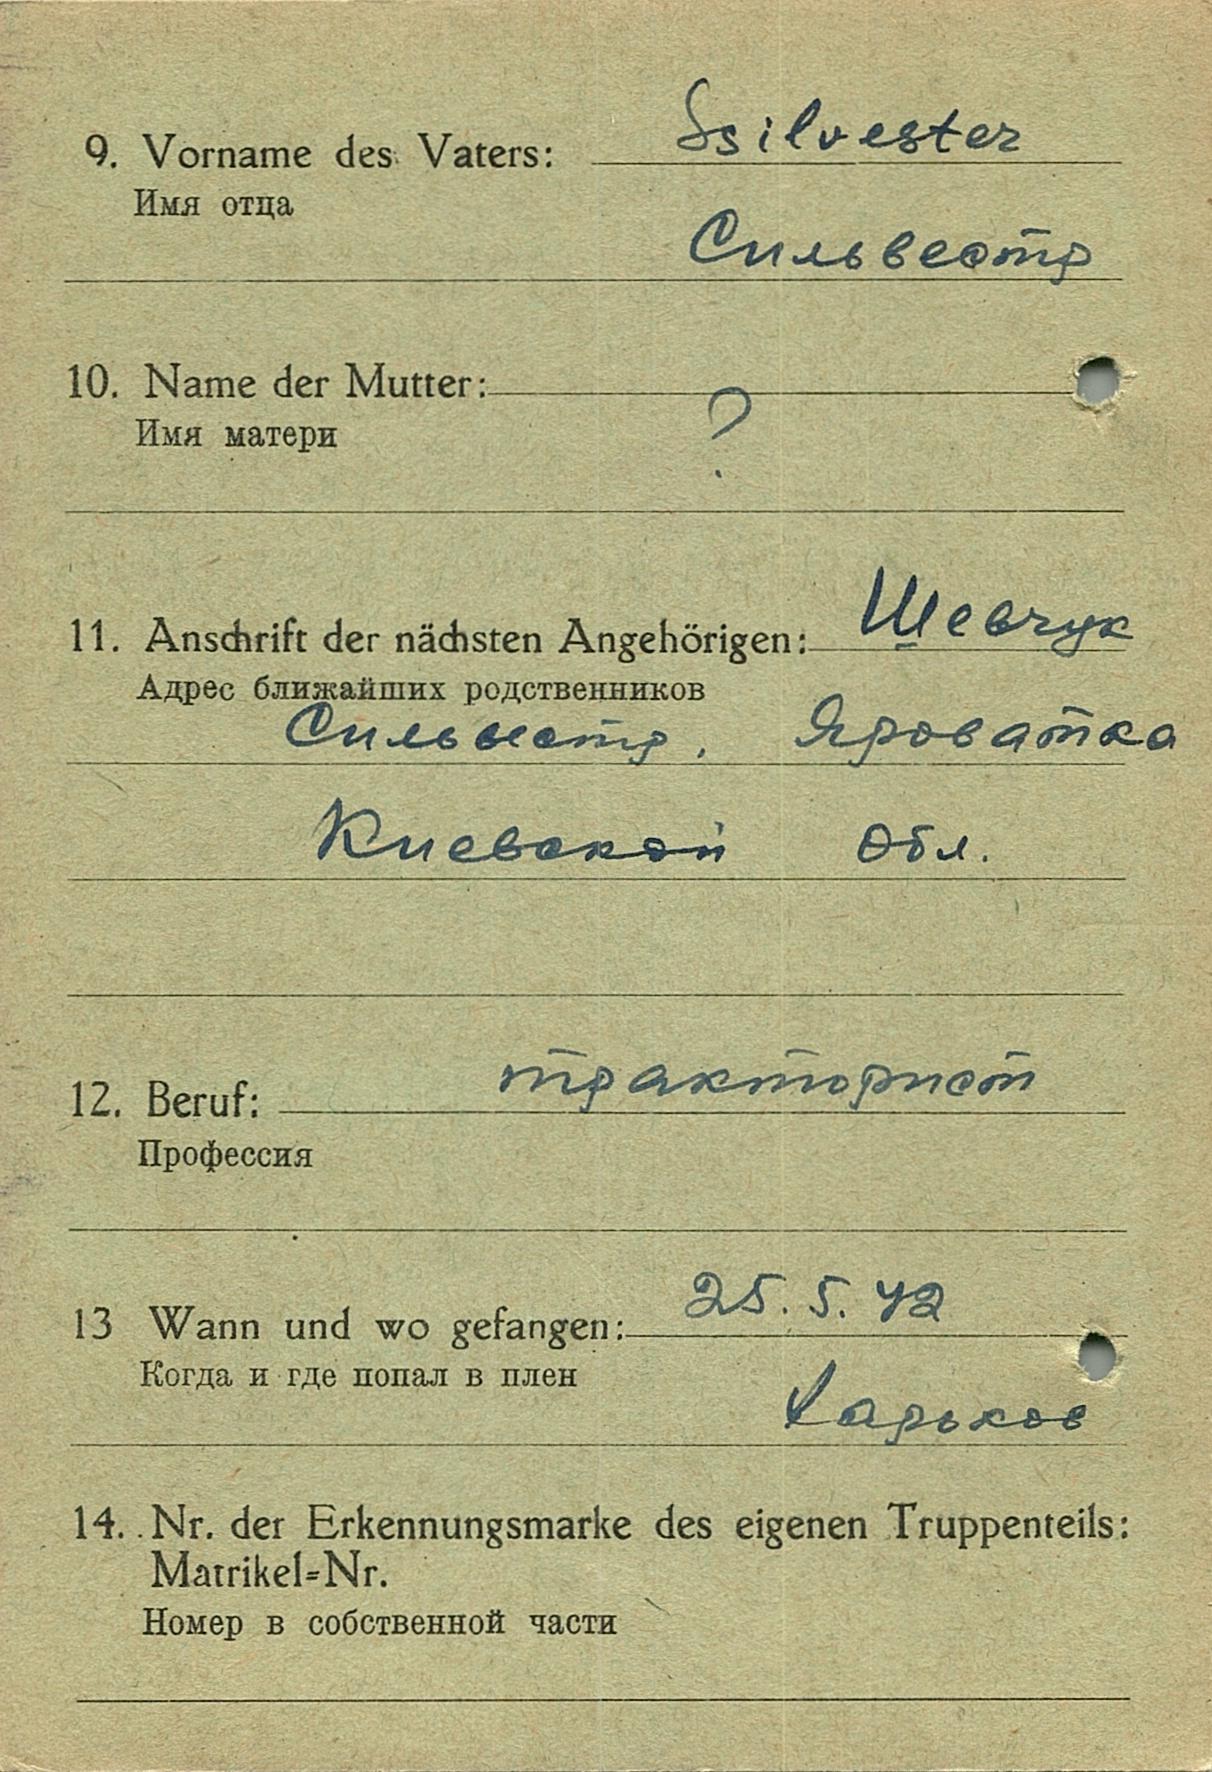 9. Vorname des Vaters: Ssilvester
Имя отца
Сильвестр
10. Name der Mutter:
Имя матери ?
11. Anschrift der nächsten Angehörigen: Шевчук
Адрес ближайших родственников
Сильвестр, Яроватка
Киевской Обл.
12. Beruf: тракторист
Профессия
13 Wann und wo gefangen: 25.5.42
Когда и где попал в плен
Харьков
14. Nr. der Erkennungsmarke des eigenen Truppenteils:
Matrikel=Nr.
Номер в собственной части